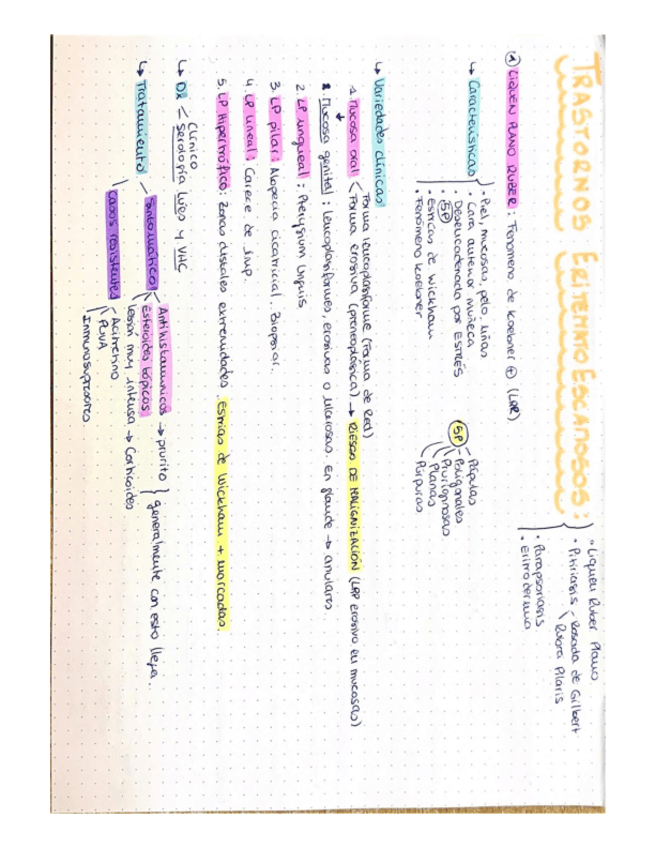 TRASTORNOS ERITEMATOESCAMOSOS:
• Liquen Ruber Plano.
• Pitiriasis - Rosada de Gilbert
Rubra Pilaris
• Parapsoriasis
• Eritrodermia
① LIQUEN PLANO RUBER: Fenomeno de Koebner ⊕ (LRP)
↳ Caracteristicas
• Piel, mucosas, pelo, uñas
• Cara anterior muñeca
• Desencadenada por ESTRÉS
• 5P
• Estrías de Wickham
• Fenómeno Koebner
5P - Pápulas
Poligonales
Pruriginosas
Planas
Púrpuras
↳ Variedades clínicas
1. Mucosa oral < Forma leucoplasiforme (Forma de Red)
Forma erosiva (preneoplásica) → RIESGO DE MALIGNIZACIÓN (LRP erosivo en mucosas)
↓
1. Mucosa genital: leucoplasiformes, erosivas o ulcerosas. En glande → anulares
2. LP ungueal: Pterygium Unguis
3. LP pilar: Alopecia cicatricial. Biopsiar.
4. LP lineal: Carece de imp.
5. LP Hipertrófico: Zonas distales extremidades. Estrías de Wickham + marcadas.
↳ DX < Clínico
Serología lúes y VHC
↳ Tratamiento
Sintomático
Antihistamínicos → prurito } generalmente con esto llega.
Esteroides tópicos
Lesión muy intensa → Corticoides
Casos resistentes
Acitretino
PUVA
Inmunosupresores